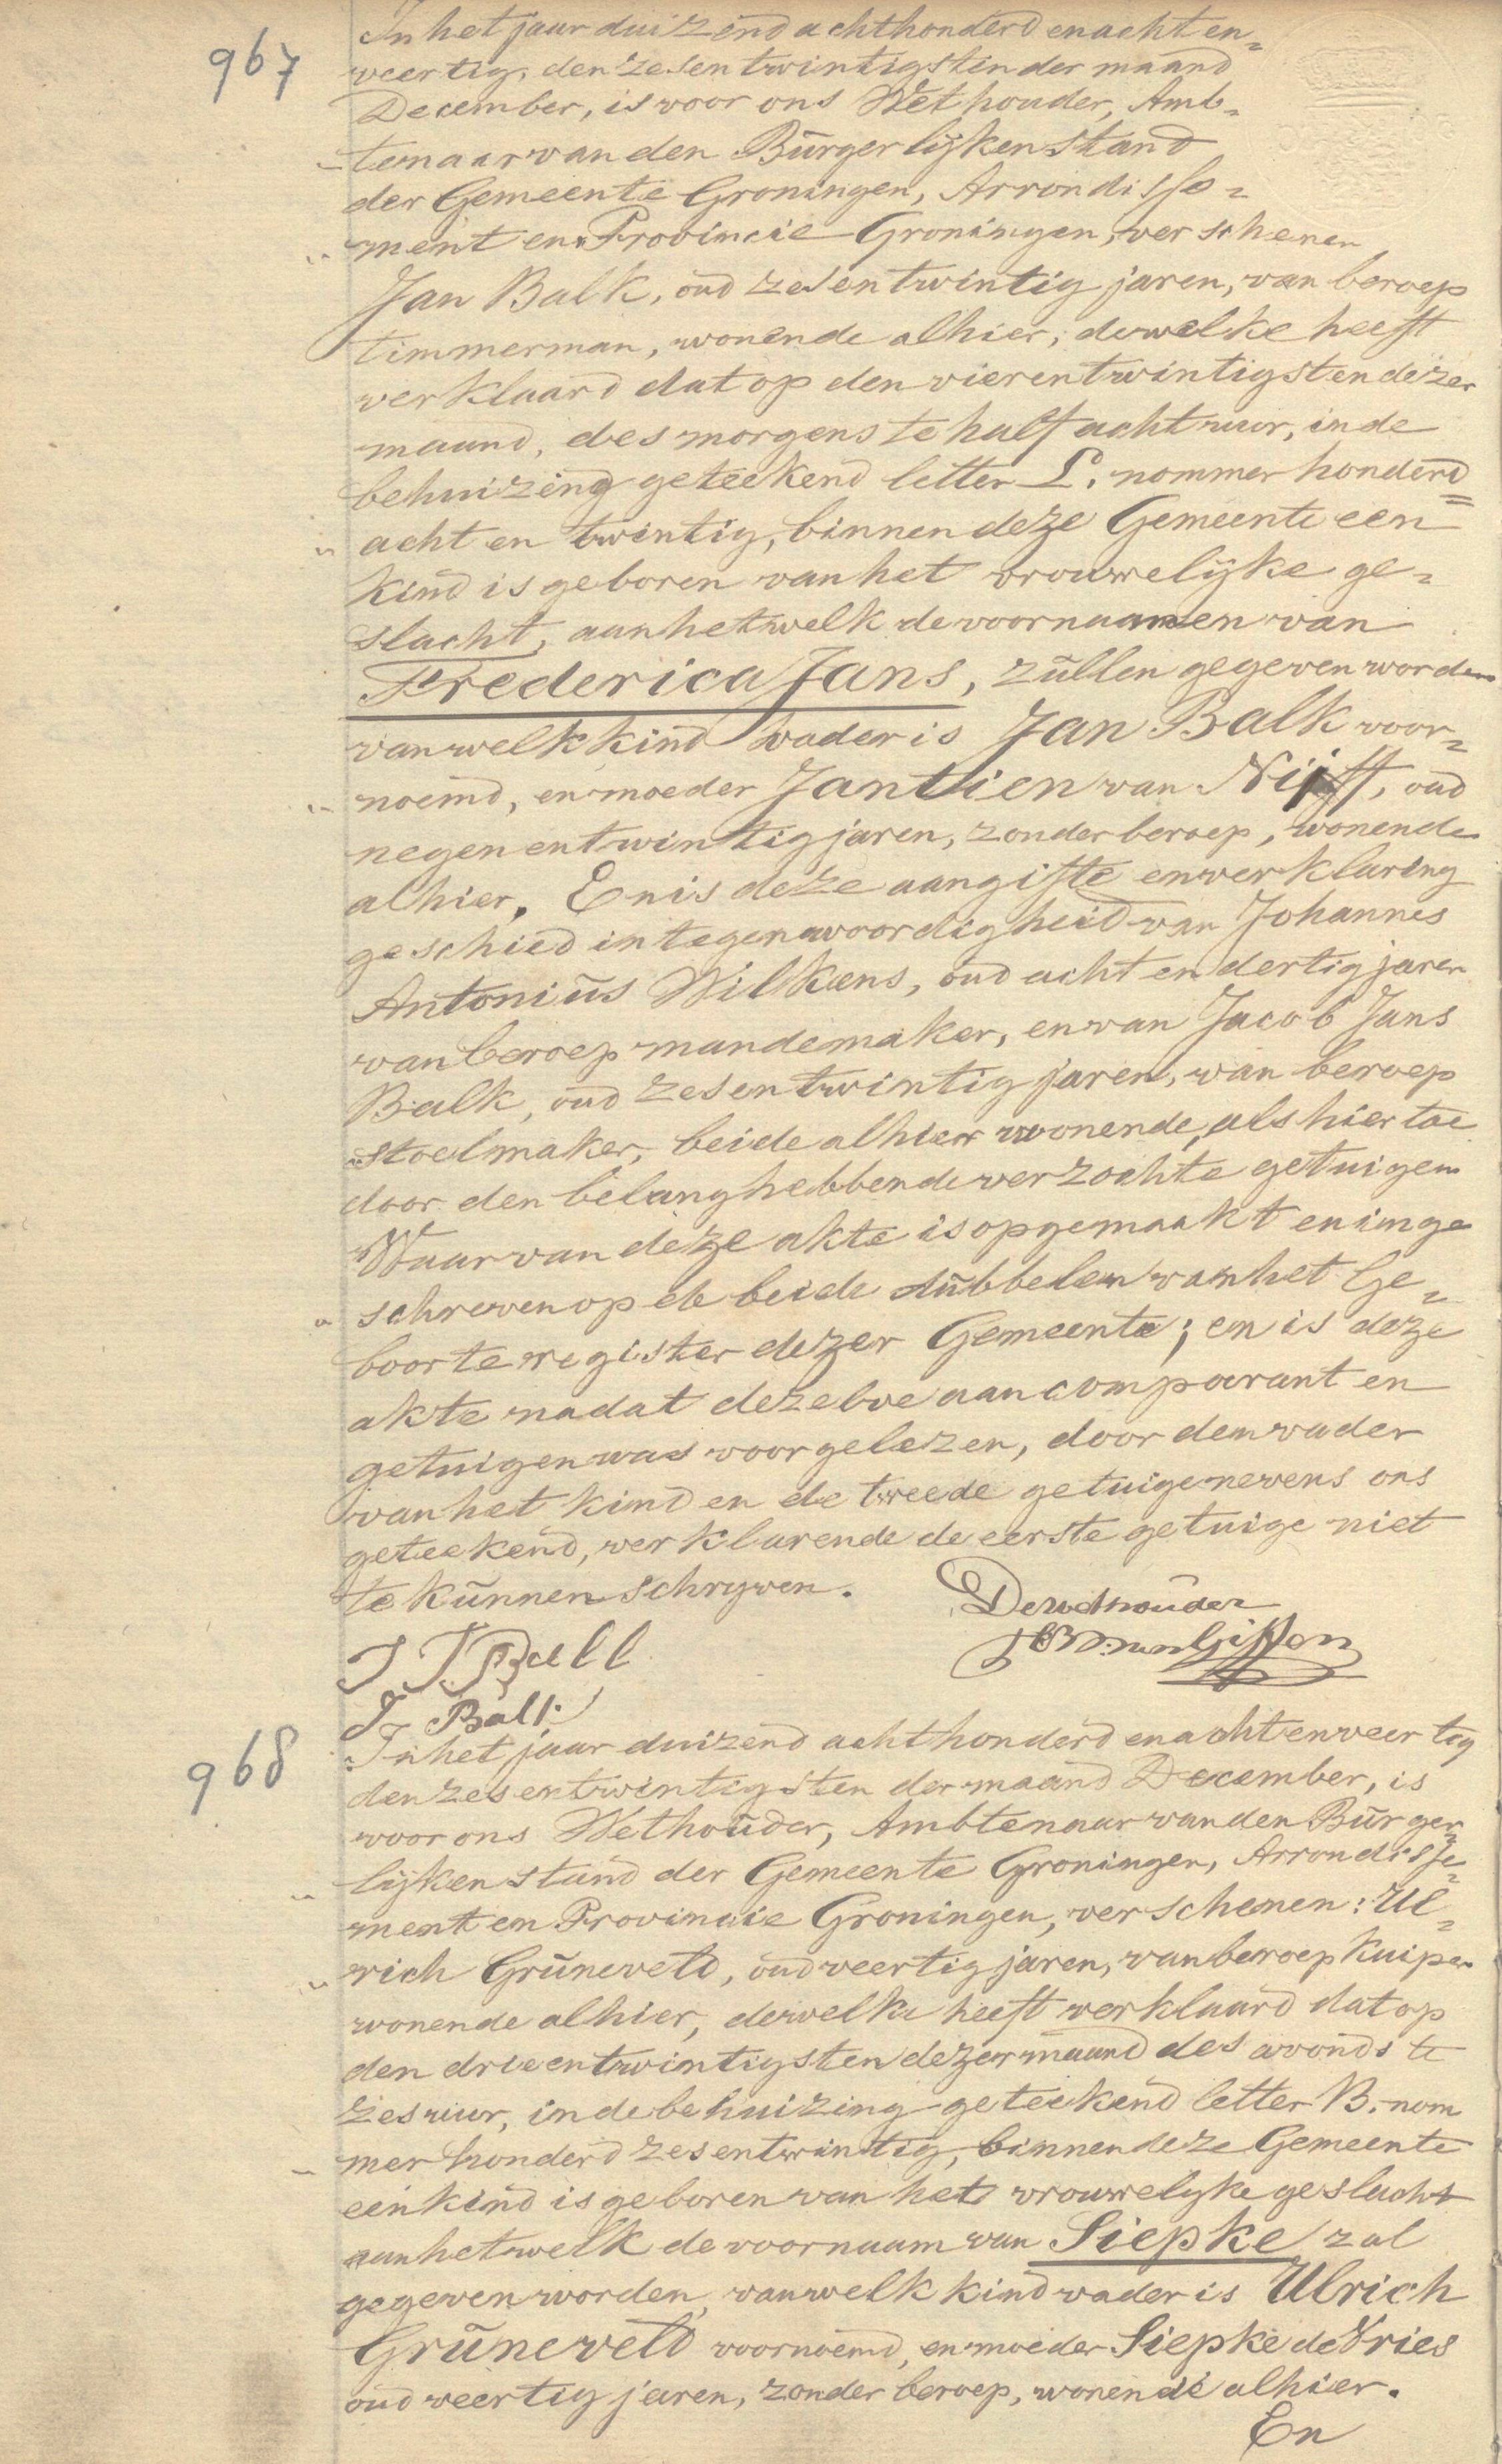 967
In het jaar duizend achthonderd en acht en„
veertig, den zesentwintigsten der maand
December, is voor ons Wethouder, Amb„
„tenaar van den Burgerlijken Stand
der Gemeente Groningen, Arrondisse„
„ment en Provincie Groningen, verschenen
Jan Balk, oud zesentwintig jaren, van beroep
timmerman, wonende alhier, dewelke heeft
verklaard dat op den vierentwintigsten dezer
maand, des morgens te half acht uur, in de
behuizing geteekend letter L. nommer honderd„
„ acht en twintig, binnen deze Gemeente een
kind is geboren van het vrouwelijke ge„
slacht, aan hetwelk de voornaamen van
Frederica Jans, zullen gegeven worden
van welk kind vader is Jan Balk voor„
„noemd, en moeder Jantien van Nijff, oud
negenentwintig jaren, zonder beroep, wonende
alhier. En is deze aangifte en verklaring
geschied in tegenwoordigheid van Johannes
Antonius Wilkens, oud acht en dertig jaren
van beroep mandemaker, en van Jacob Jans
Balk, oud zesentwintig jaren, van beroep
stoelmaker, beide alhier wonende, als hiertoe
door den belanghebbende verzochte getuigen
Waarvan deze akte is opgemaakt en inge
„ schreven op de beide dubbelen van het Ge„
boorteregister dezer Gemeente; en is deze
akte nadat dezelve aan comparant en
getuigen was voorgelezen, door den vader
van het kind en de tweede getuige nevens ons
geteekend, verklarende de eerste getuige niet
te kunnen schryven.
De wethouder
J J Balk
J Balk
968
In het jaar duizend achthonderd en acht en veertig
den zesentwintigsten der maand December, is
voor ons Wethouder, Ambtenaar van den Burger„
„ lijken Stand der Gemeente Groningen, Arrondisse„
ment en Provincie Groningen, verschenen: Ul„
„ rich Gruneveld, oud veertig jaren, van beroep Kuiper
wonende alhier, dewelke heeft verklaard dat op
den drieentwintigsten dezer maand des avonds te
zes uur, in de behuizing geteekend letter B. nom
„ mer honderd zesentwintig, binnen deze Gemeente
een kind is geboren van het vrouwelyke geslacht
aan hetwelk de voornaam van Siepke zal
gegeven worden, van welk kind vader is Ulrich
Gruneveld voornoemd, en moeder Siepke de Vries
oud veertig jaren, zonder beroep, wonende alhier.
En